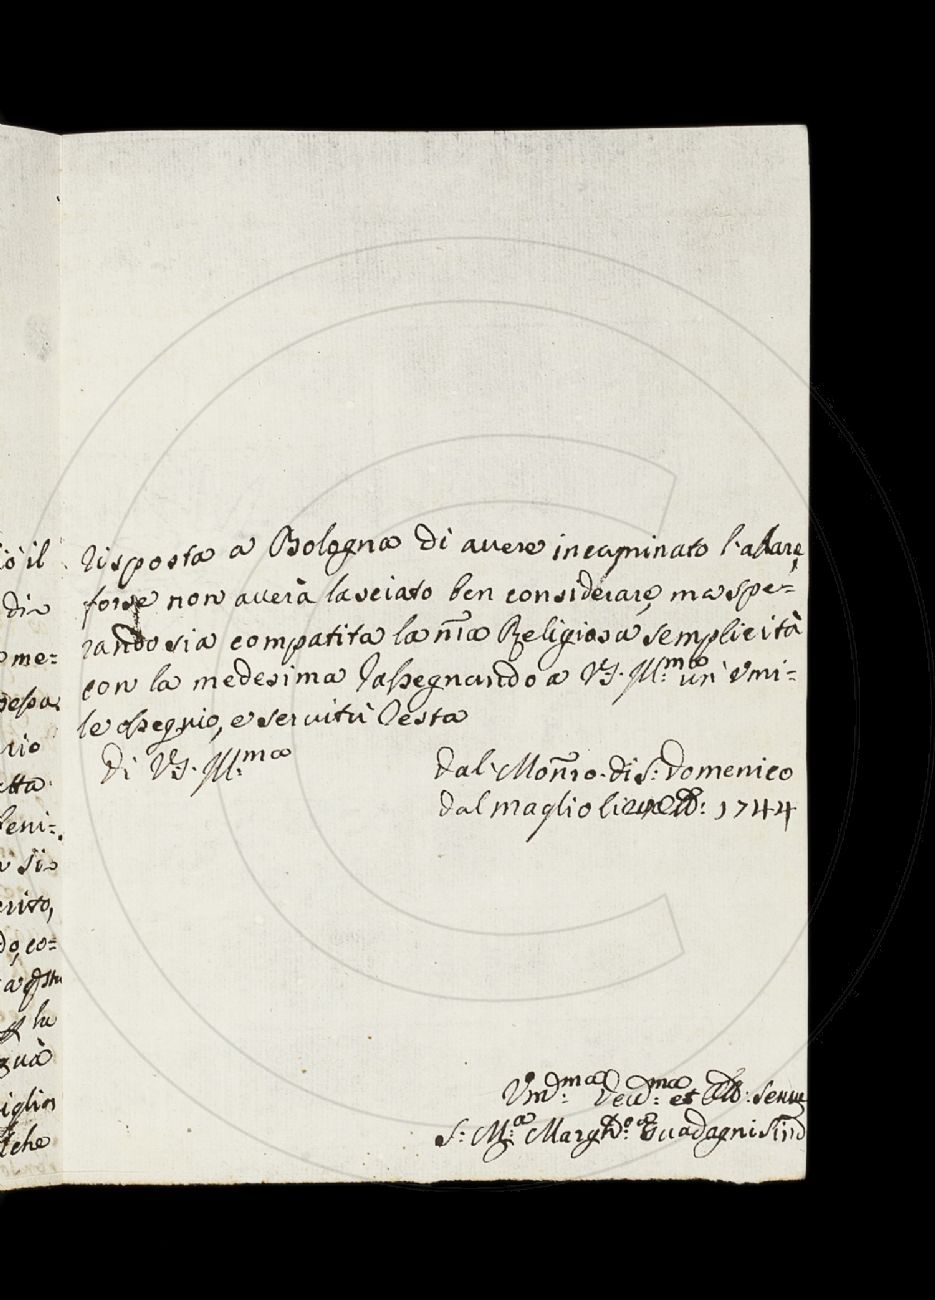 ió il
di
o me=
rio
etta
beni=
si=
erito,
do, co=
la
iglior
che
risposta a Bologna di avere incaminato l'altare,
forse non averà lasciato ben considerare, ma spe=
rando sia compatita la nr̃a Religiosa semplicità
con la medesima rassegnando a VS. Ill:ma un' vmi=
le ossequio, e servitù resta
di VS. Ill:ma
dal Monro. di S: Domenico
dal maglio li 8b: 1744
Vmd:ma Deu:ma et Obb: Serua
S: M:a Margh:a Guadagni Sind